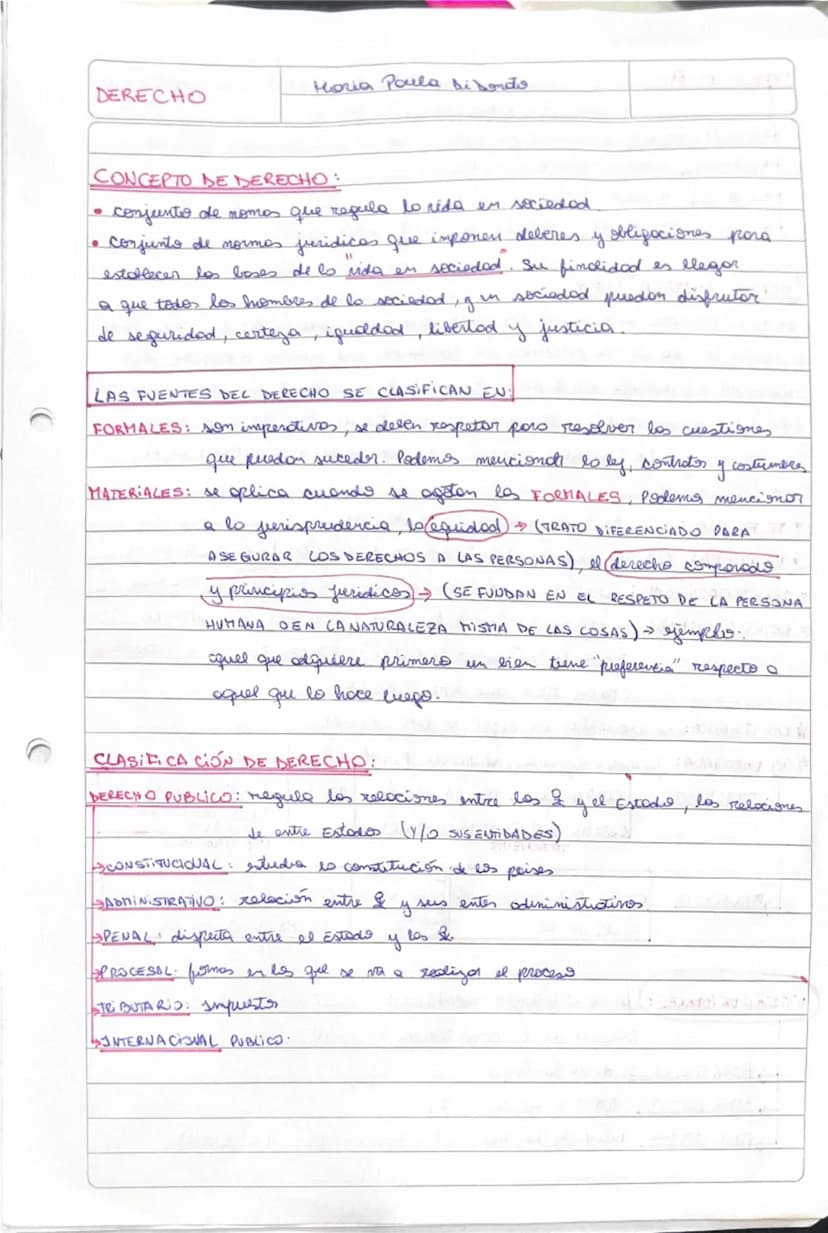 DERECHO
Maria Paula Di Donato
CONCEPTO DE DERECHO:
• conjunto de normas que regula la vida en sociedad
• Conjunto de normas juridicas que imponen deberes y obligaciones para
establecer las bases de la "vida en sociedad". Su finalidad es llegar
a que todos los hombres de la sociedad, y en sociedad puedan disfrutar
de seguridad, certeza, igualdad, libertad y justicia.
LAS FUENTES DEL DERECHO SE CLASIFICAN EN:
FORMALES: son imperativas, se deben respetar para resolver las cuestiones
que puedan suceder. Podemos mencionar la ley, contratos y costumbres
MATERIALES: se aplica cuando se agotan las FORMALES, Podemos mencionar
a la jurisprudencia, la equidad → (TRATO DIFERENCIADO PARA
ASEGURAR LOS DERECHOS A LAS PERSONAS), el derecho comparado
y principios juridicos → (SE FUNDAN EN EL RESPETO DE LA PERSONA
HUMANA O EN LA NATURALEZA MISMA DE LAS COSAS) → ejemplo:
aquel que adquiere primero un bien tiene "preferencia" respecto a
aquel que lo hace luego.
CLASIFICACIÓN DE DERECHO:
DERECHO PUBLICO: regula las relaciones entre las y el Estado, las relaciones
de entre Estados (Y/O SUS ENTIDADES)
→CONSTITUCIONAL: estudia la constitución de los paises
→ADMINISTRATIVO: relación entre y sus entes administrativos.
→PENAL: disputa entre el Estado y las
→PROCESAL: formas en las que se va a realizar el proceso
→TRIBUTARIO: impuestos
→INTERNACIONAL PUBLICO: